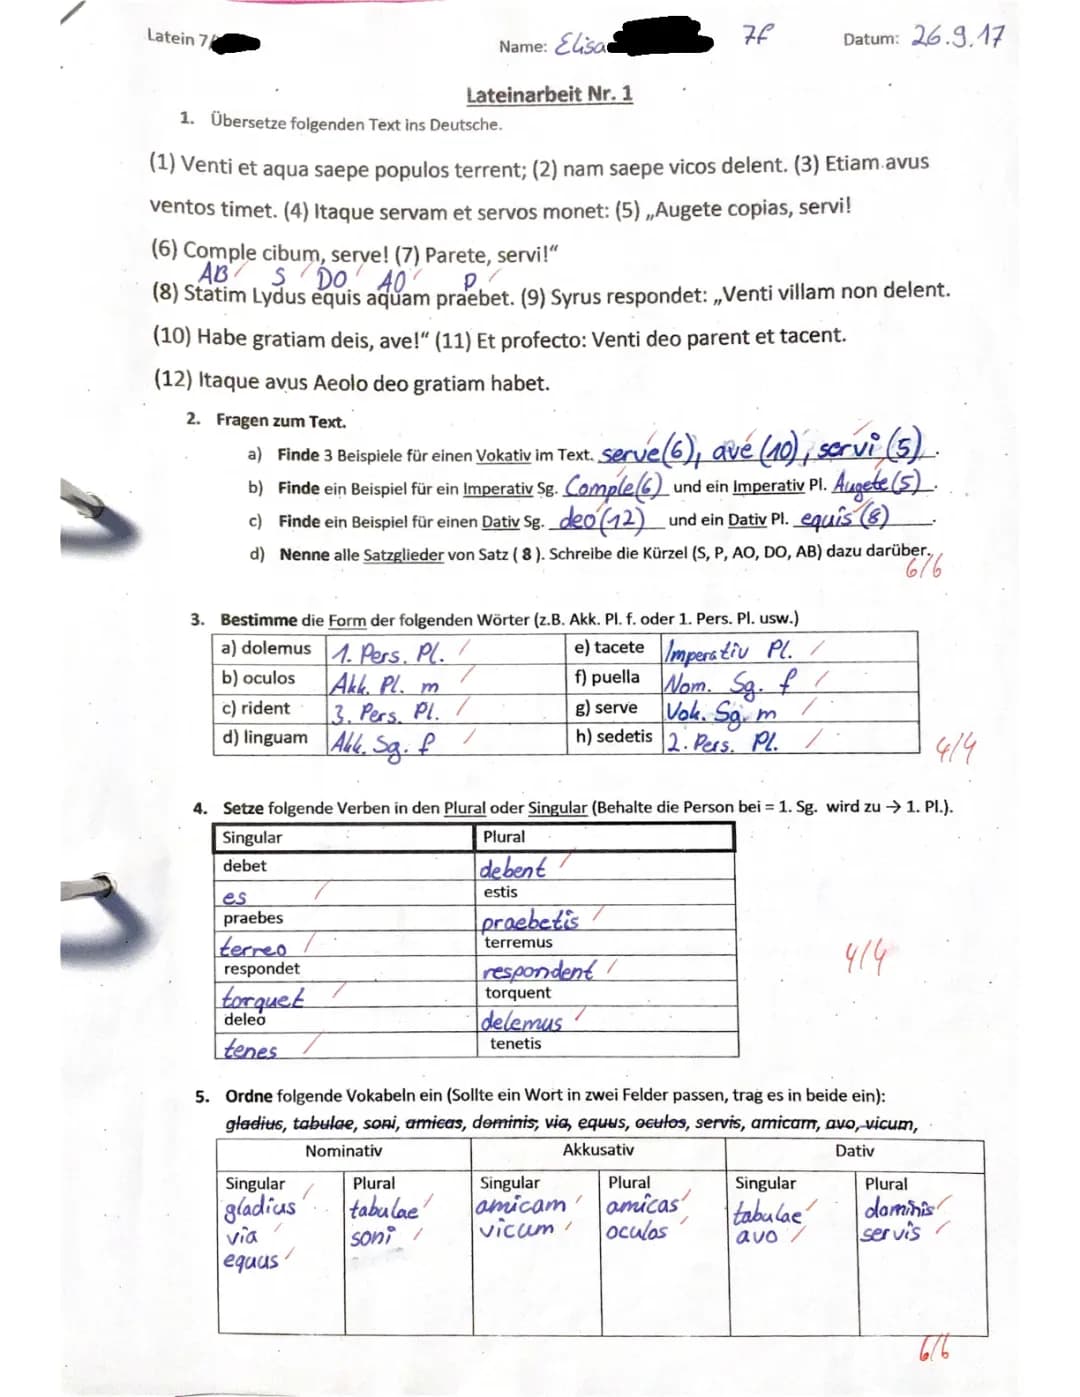 Latein 7/
Name: Elisa 7f Datum: 26.9.17
Lateinarbeit Nr. 1
1. Übersetze folgenden Text ins Deutsche.
(1) Venti et aqua saepe populos terrent; (2) nam saepe vicos delent. (3) Etiam avus
ventos timet. (4) Itaque servam et servos monet: (5) „Augete copias, servi!
(6) Comple cibum, serve! (7) Parete, servi!“
AB S DO AO P
(8) Statim Lydus equis aquam praebet. (9) Syrus respondet: „Venti villam non delent.
(10) Habe gratiam deis, ave!“ (11) Et profecto: Venti deo parent et tacent.
(12) Itaque avus Aeolo deo gratiam habet.
2. Fragen zum Text.
a) Finde 3 Beispiele für einen Vokativ im Text. serve (6), ave (10), servi (5).
b) Finde ein Beispiel für ein Imperativ Sg. Comple (6) und ein Imperativ Pl. Augete (5).
c) Finde ein Beispiel für einen Dativ Sg. deo (12) und ein Dativ Pl. equis (8).
d) Nenne alle Satzglieder von Satz ( 8 ). Schreibe die Kürzel (S, P, AO, DO, AB) dazu darüber.
6/6
3. Bestimme die Form der folgenden Wörter (z.B. Akk. Pl. f. oder 1. Pers. Pl. usw.)
a) dolemus 1. Pers. Pl. e) tacete Imperativ Pl.
b) oculos Akk. Pl. m f) puella Nom. Sg. f
c) rident 3. Pers. Pl. g) serve Vok. Sg. m
d) linguam Akk. Sg. f h) sedetis 2. Pers. Pl.
4/4
4. Setze folgende Verben in den Plural oder Singular (Behalte die Person bei = 1. Sg. wird zu → 1. Pl.).
Singular Plural
debet debent
es estis
praebes praebetis
terreo terremus
4/4
respondet respondent
torquet torquent
deleo delemus
tenes tenetis
5. Ordne folgende Vokabeln ein (Sollte ein Wort in zwei Felder passen, trag es in beide ein):
gladius, tabulae, soni, amicas, dominis, via, equus, oculos, servis, amicam, avo, vicum,
Nominativ Akkusativ Dativ
Singular Plural Singular Plural Singular Plural
gladius tabulae amicam amicas tabulae dominis
via soni vicum oculos avo servis
equus
6/6